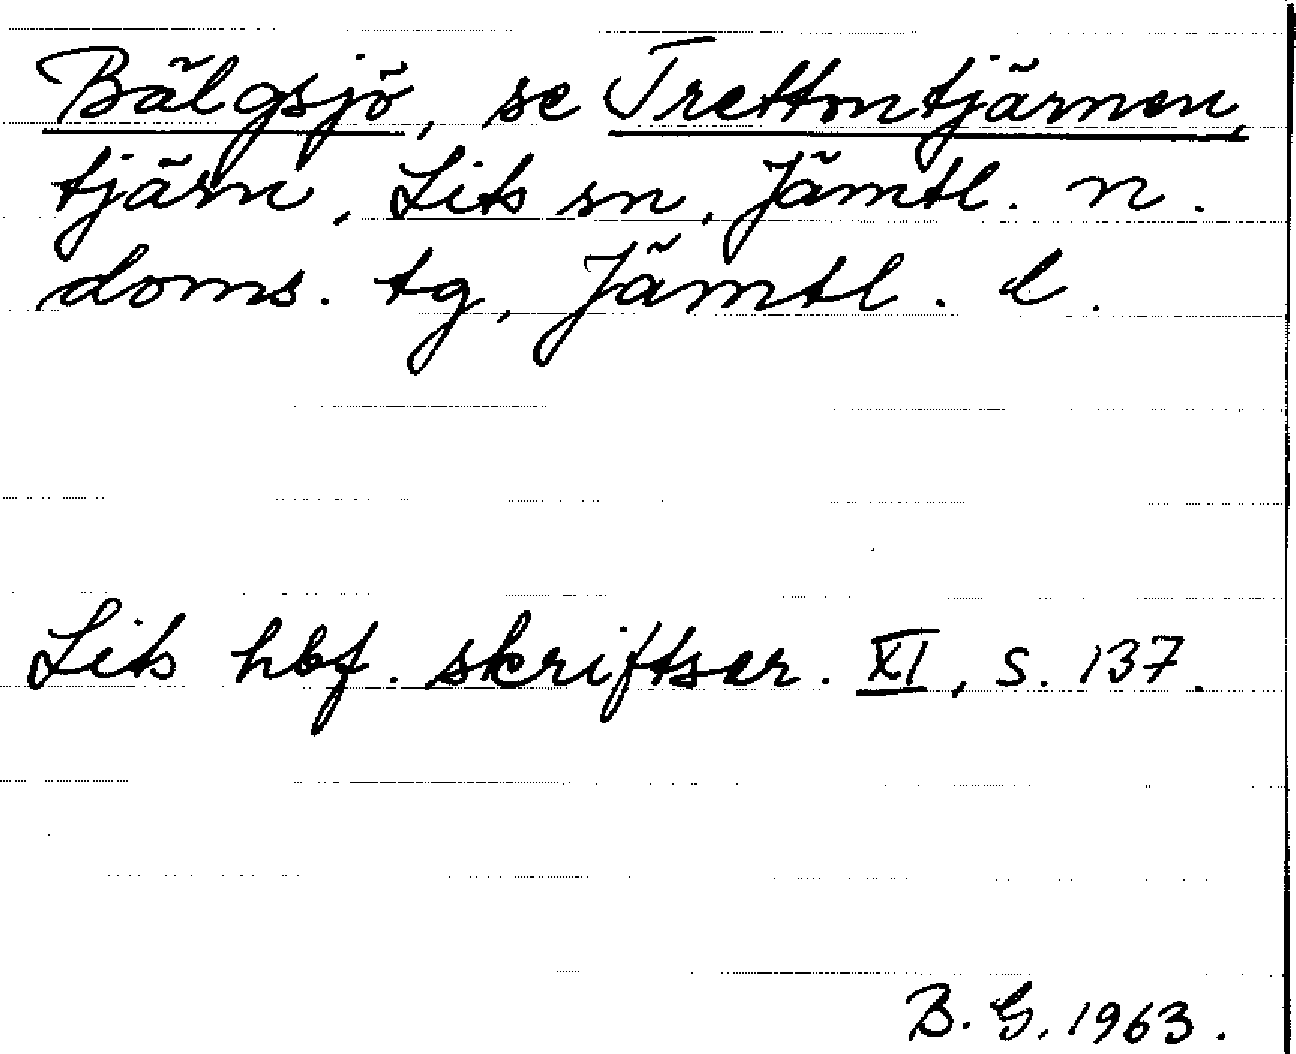 Bälgsjö, se Trettontjärnen,
tjärn, Lits sn, Jämtl. n.
doms. tg, Jämtl. l.
Lits hbf. skriftser. XI, s. 137.
B. G. 1963.